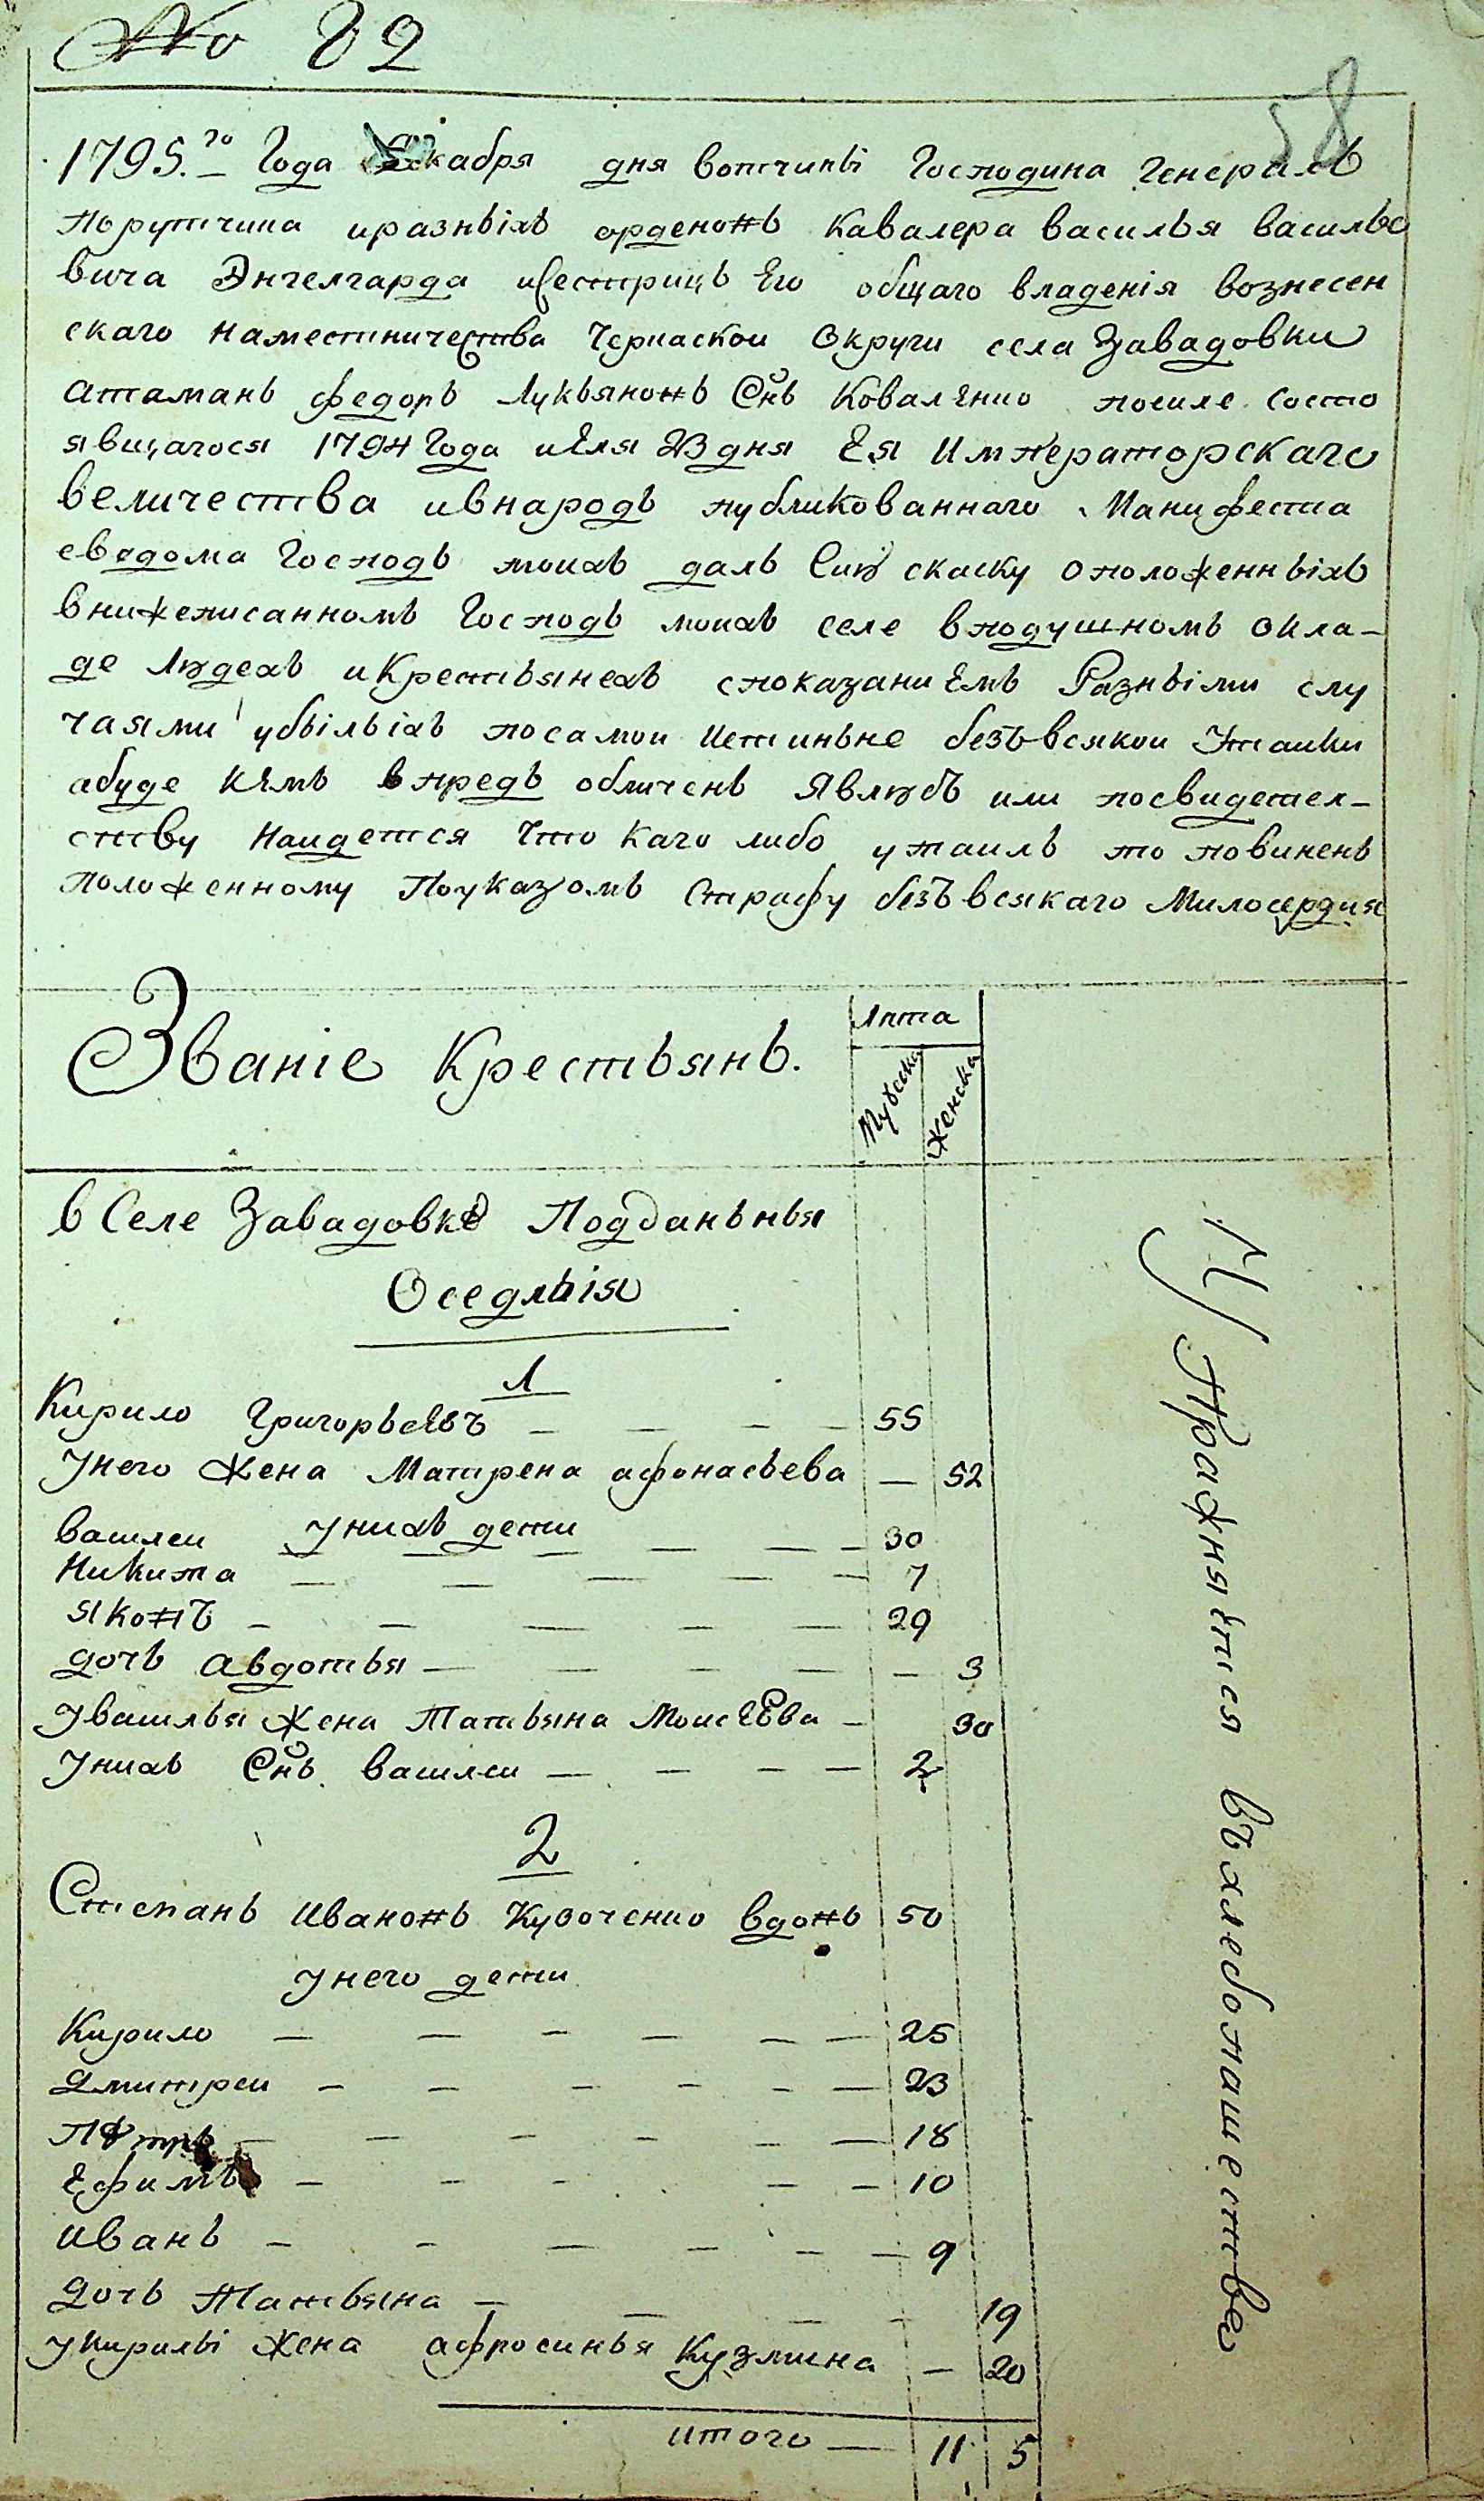 № 82
58
1795.го Года Декабря дня вотчины Господина Генералъ
порутчика иразныхъ орденовъ Кавалера василья василье
вича Энгелгарда исестрицъ Его общаго владенія вознесен
скаго наместничества Черкаскои Округи села Завадовки
атаманъ федоръ Лукьяновъ Снъ КовалЕнко посиле состо
явщагося 1794 Года иЕля 23 дня Ея Императорскаго
величества ивнародъ публикованнаго Манифеста
сведома Господъ моихъ далъ Сию скаску оположенныхъ
внижеписанномъ Господъ моихъ селе вподушномъ окла-
де Людехъ иКрестьянехъ споказаниЕмъ Разными слу
чаями убылыхъ посамои Истинъне безъвсякои Утаики
абуде кЕмъ впредь обличенъ Явлюсъ или посвидетел-
ству наидется Что каго либо утаилъ то повиненъ
положенному Поуказомъ Страфу безъвсякаго Милосердия
Званіе Крестьянъ.
Лѣта
Мужеска
Женска
в Селе Завадовке Подданьныя
Оседлыія
1
Кирило ГригорьеЕвъ — — — — 55
Унего Жена Матрена афонасьева — 52
Унихъ дети
василеи — — — — — 30
Никита — — — — — 7
яковъ — — — — — 29
дочъ авдотья — — — — — 3
Увасилья Жена Татьяна МоисЕЕва — 30
Унихъ Снъ василеи — — — — 2
2
Степанъ Ивановъ Кузоченко вдовъ 50
Унего дети
Кирило — — — — — — 25
Дмитреи — — — — — — 23
Петръ — — — — — — 18
Ефимъ — — — — — 10
Иванъ — — — — — — 9
Дочъ Татьяна — — — — 19
Укирилы Жена афросинья Кузмина — 20
итого — 11 5
Упражняется въхлебопашестве